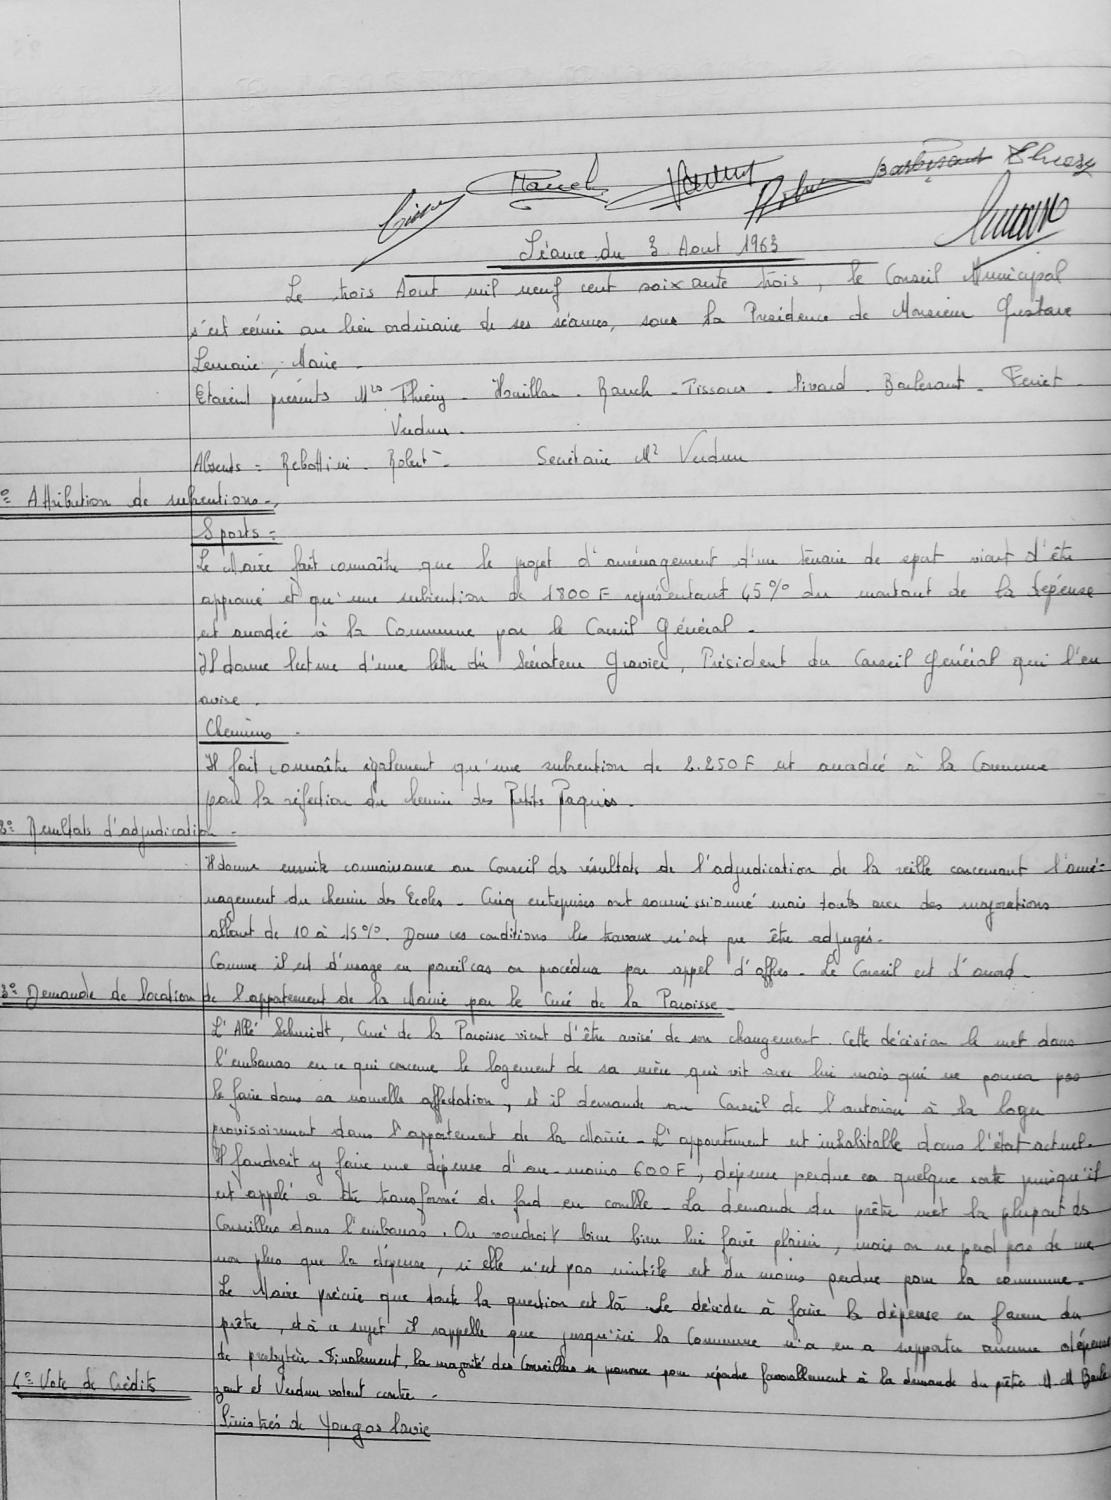 Barbesant Thiery
Séance du 3 Aout 1963
Le trois Aout mil neuf cent soixante trois, le Conseil Municipal
s'est réuni au lieu ordinaire de ses séances, sous la Présidence de Monsieur Gustave
Lemaire, Maire.
Etaient présents Mrs Thiéry - Hawillan - Rauch - Tissour - Pivard - Barbesant - Feriet -
Verdun -
Absents = Rebottini - Robert - Secrétaire Mr Verdun
1° Attribution de subventions -
Sports =
Le Maire fait connaître que le projet d'aménagement d'un terrain de sport vient d'être
approuvé et qu'une subvention de 1800 F représentant 45% du montant de la dépense
est accordée à la Commune par le Conseil Général -
Il donne lecture d'une lettre du Sénateur Gravier, Président du Conseil Général qui l'en
avise .
Chemins -
Il fait connaître également qu'une subvention de 2.250 F est accordée à la Commune
pour la réfection du chemin des Petits Paquis .
2° Résultats d'adjudication -
Il donne ensuite connaissance au Conseil des résultats de l'adjudication de la veille concernant l'amé-
nagement du chemin des Ecoles - Cinq entreprises ont soumissionné mais toutes avec des majorations
allant de 10 à 15% . Dans ces conditions les travaux n'ont pu être adjugés -
Comme il est d'usage en pareil cas on procédera par appel d'offres - Le Conseil est d'accord -
3° Demande de location de l'appartement de la Mairie par le Curé de la Paroisse -
L'Abbé Schmidt, Curé de la Paroisse vient d'être avisé de son changement . Cette décision le met dans
l'embarras en ce qui concerne le logement de sa mère qui vit avec lui mais qui ne pourra pas
le faire dans sa nouvelle affectation, et il demande au Conseil de l'autoriser à la loger
provisoirement dans l'appartement de la Mairie - L'appartement est inhabitable dans l'état actuel -
Il faudrait y faire une dépense d'au-moins 600 F, dépense perdue en quelque sorte puisqu'il
est appelé à être transformé de fond en comble - La demande du prêtre met la plupart des
Conseillers dans l'embarras . On voudrait bien bien lui faire plaisir, mais on ne perd pas de vue
non plus que la dépense, si elle n'est pas inutile est du moins perdue pour la commune -
Le Maire précise que toute la question est là - Se décider à faire la dépense en faveur du
prêtre, et à ce sujet il rappelle que jusqu'ici la Commune n'a eu a supporter aucune dépense
de presbytère - Finalement, la majorité des Conseillers se prononce pour répondre favorablement à la demande du prêtre M. M Barbe
zant et Verdun votent contre -
4° Vote de Crédits
Sinistrés de Yougoslavie